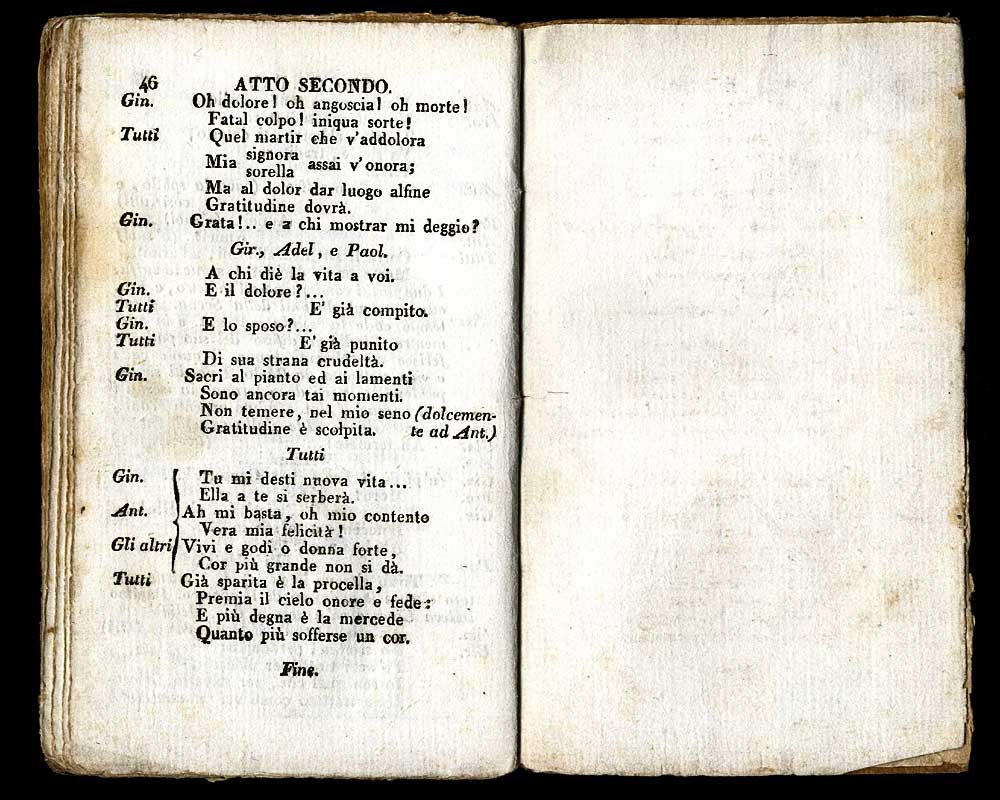 46 ATTO SECONDO.
Gin. Oh dolore! oh angoscia! oh morte!
Fatal colpo! iniqua sorte!
Tutti Quel martir che v'addolora
Mia signora assai v'onora;
sorella
Ma al dolor dar luogo alfine
Gratitudine dovrà.
Gin. Grata!.. e a chi mostrar mi deggio?
Gir., Adel, e Paol.
A chi diè la vita a voi.
Gin. E il dolore?...
Tutti E' già compito.
Gin. E lo sposo?...
Tutti E' già punito
Di sua strana crudeltà.
Gin. Sacri al pianto ed ai lamenti
Sono ancora tai momenti.
Non temere, nel mio seno (dolcemen-
Gratitudine è scolpita. te ad Ant.)
Tutti
Gin. Tu mi desti nuova vita...
Ella a te si serberà.
Ant. Ah mi basta, oh mio contento
Vera mia felicità!
Gli altri Vivi e godi o donna forte,
Cor più grande non si dà.
Tutti Già sparita è la procella,
Premia il cielo onore e fede:
E più degna è la mercede
Quanto più sofferse un cor.
Fine.